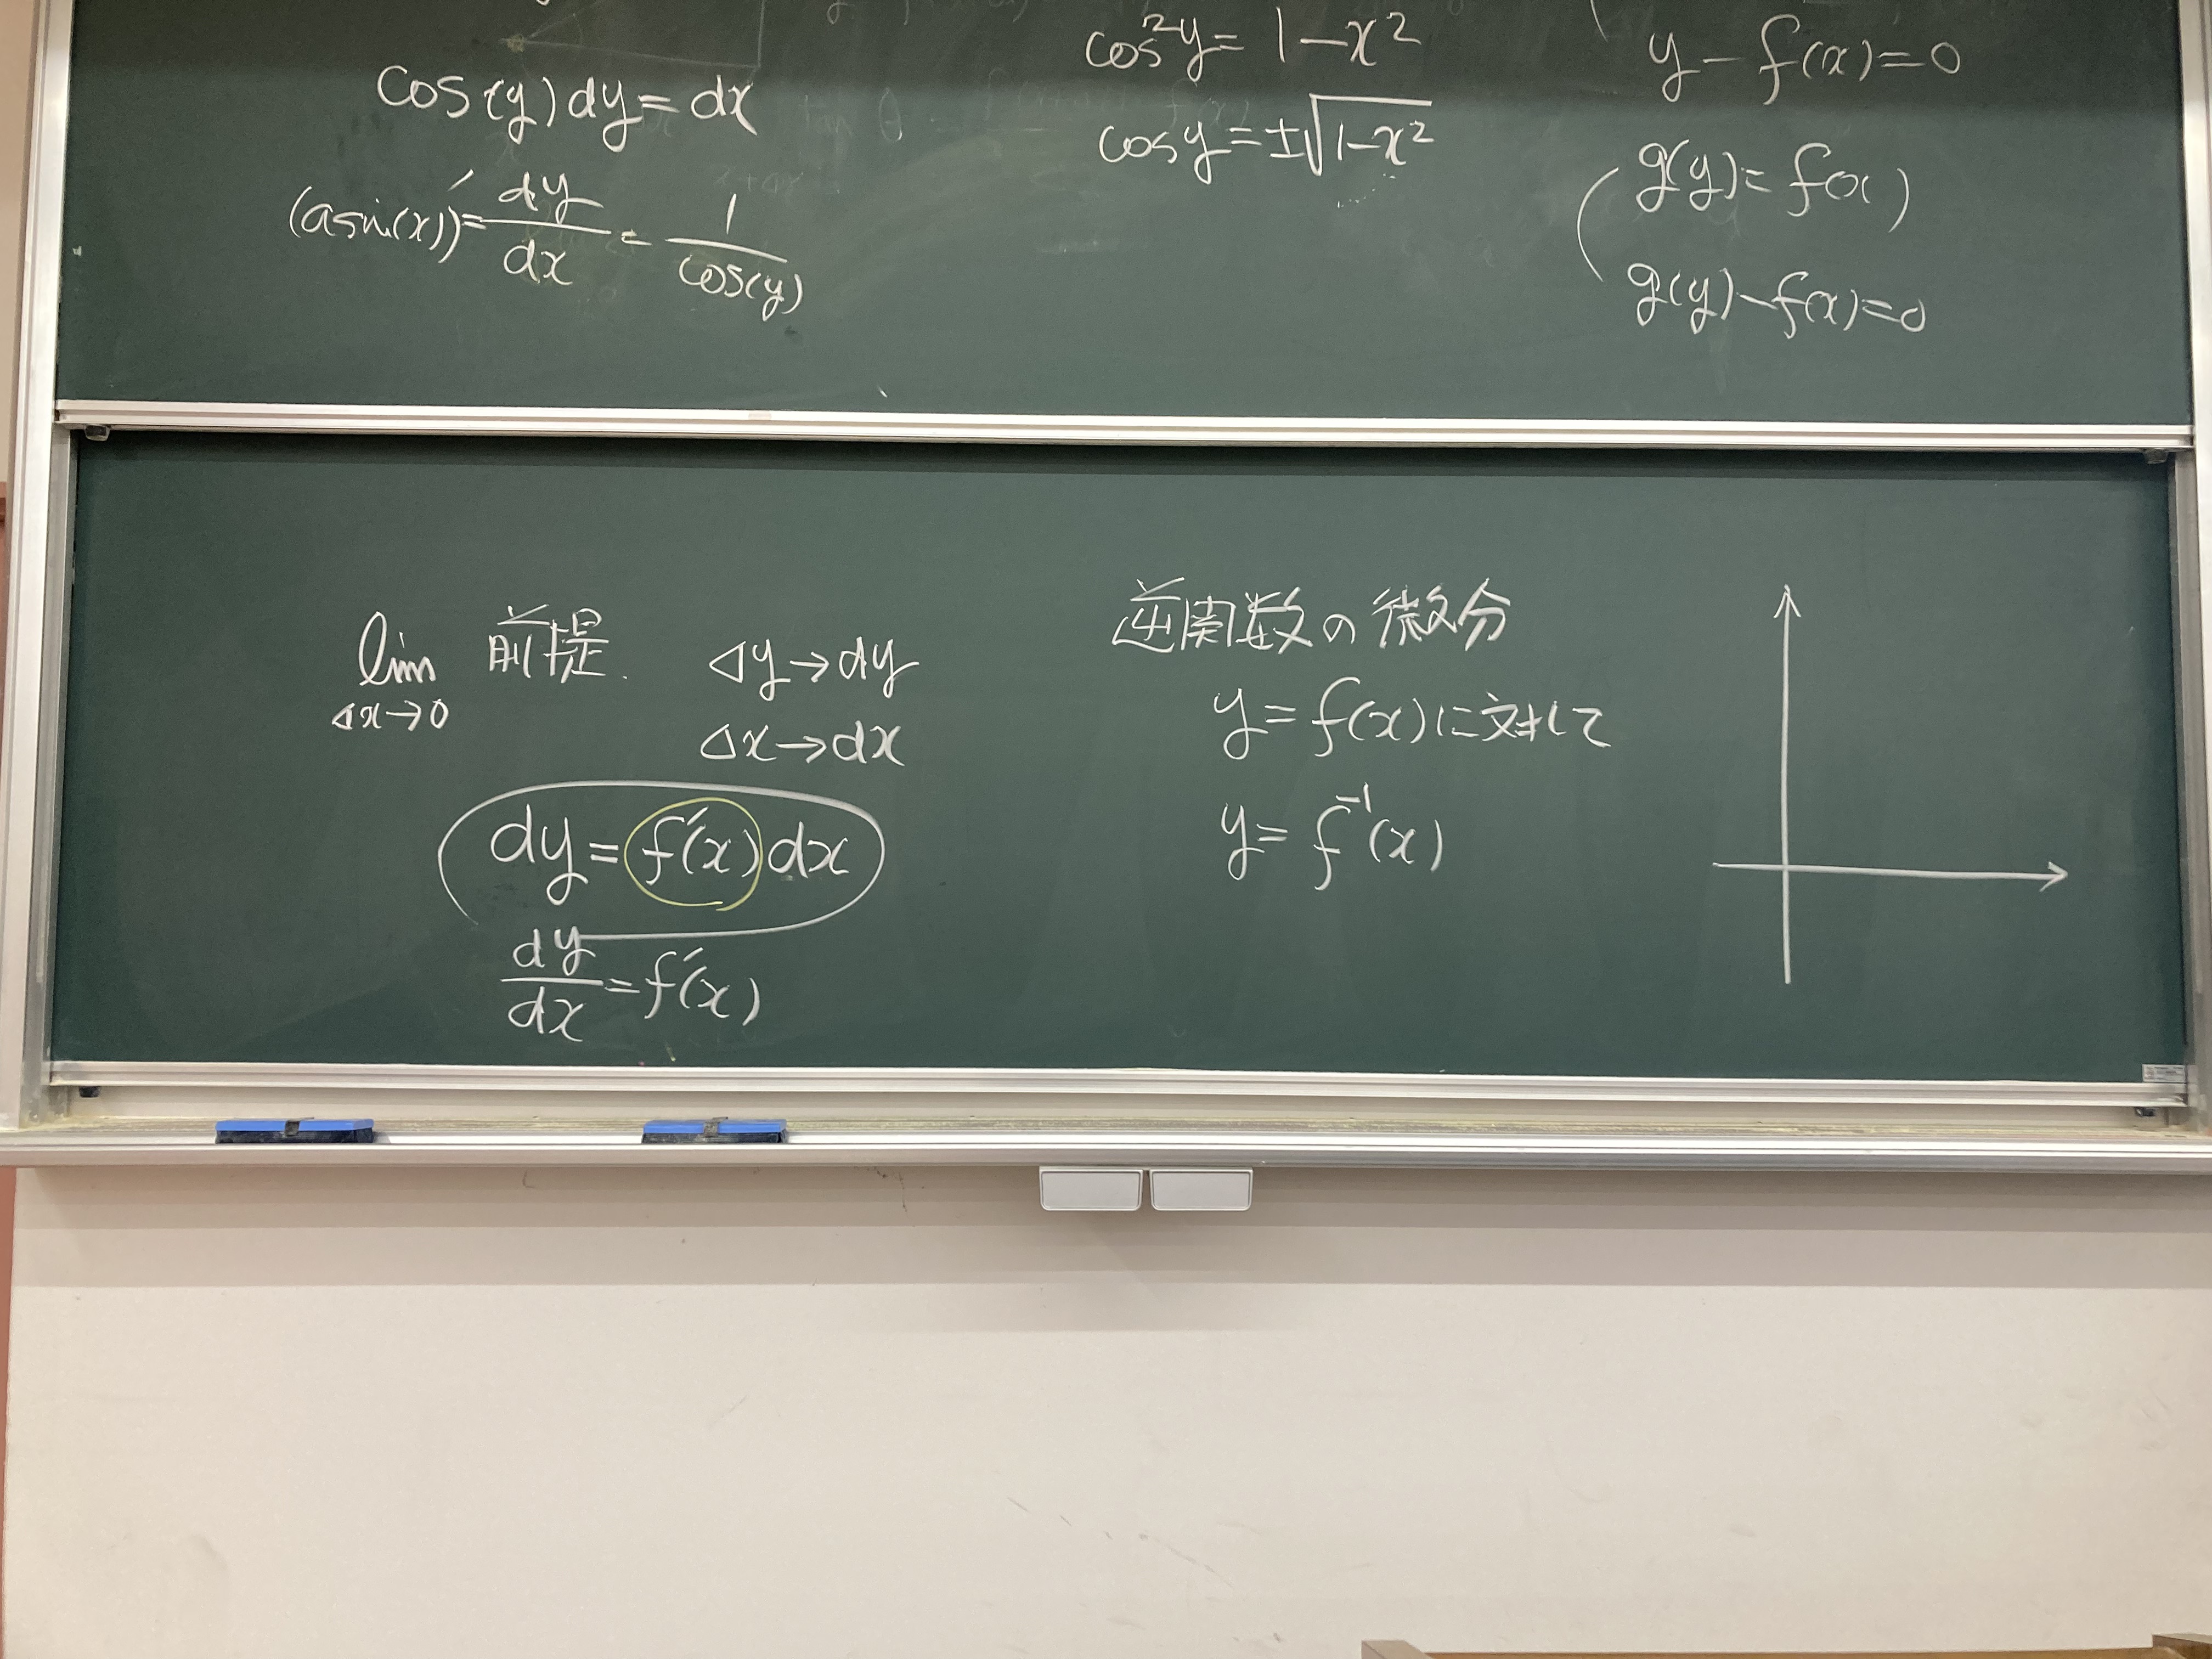 cos(y)dy=dx
(asin(x))'=dy/dx=1/cos(y)
cos²y=1-x²
cosy=±√1-x²
y-f(x)=0
g(y)=f(x)
g(y)-f(x)=0
lim Δx→0 前提.
Δy→dy
Δx→dx
dy=f'(x)dx
dy/dx=f'(x)
逆関数の微分
y=f(x)に対して
y=f⁻¹(x)